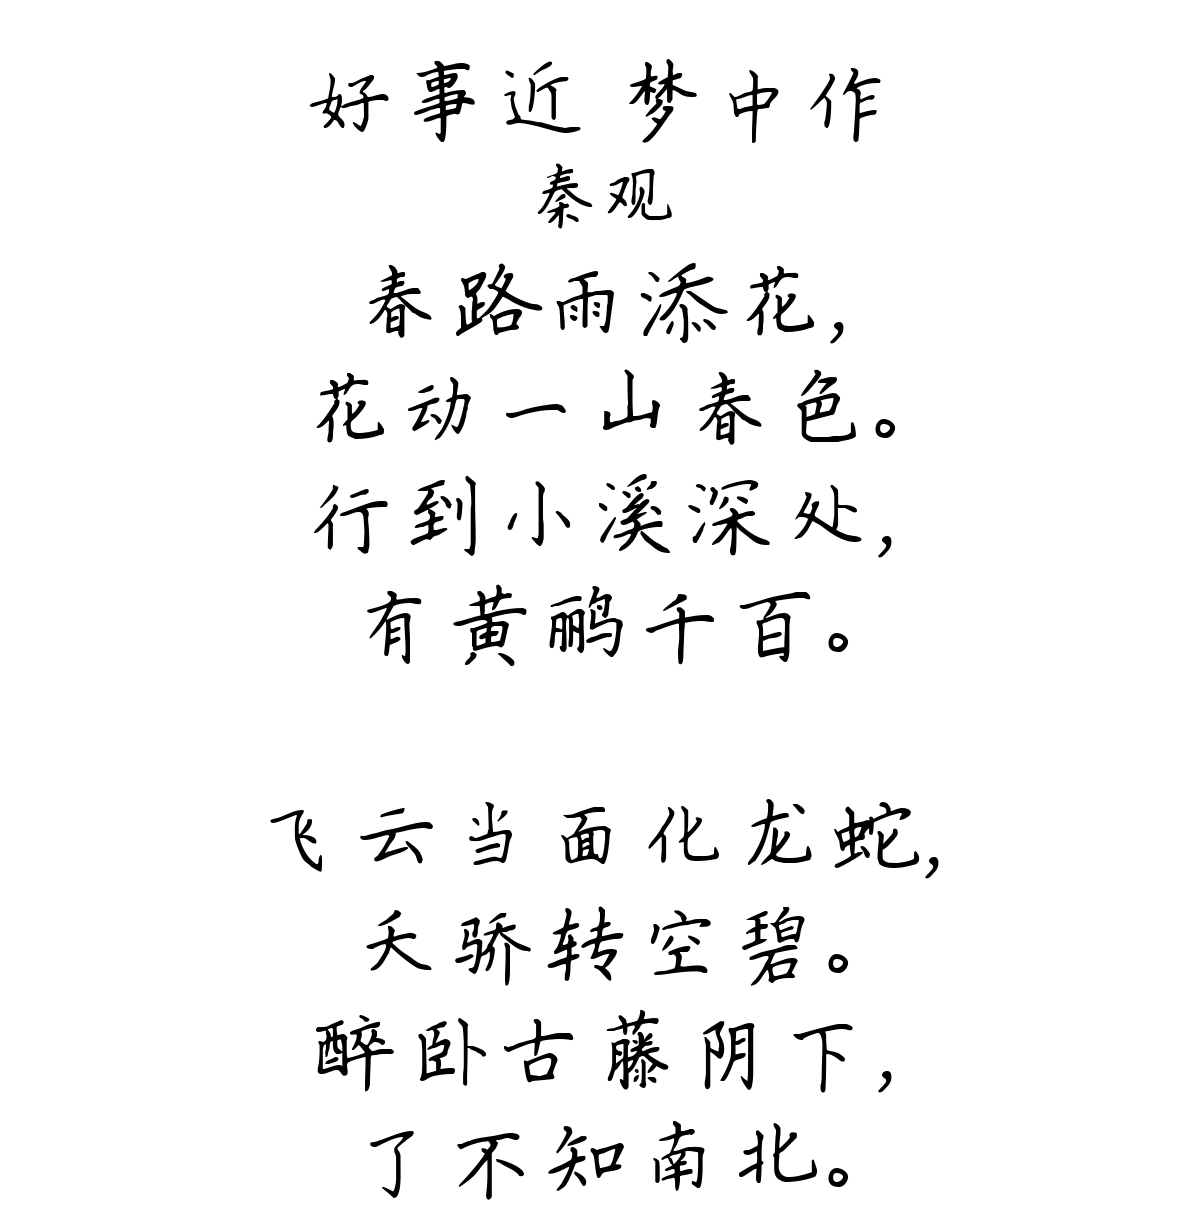 好事近 梦中作
秦观
春路雨添花,
花动一山春色。
行到小溪深处,
有黄鹂千百。
飞云当面化龙蛇,
夭骄转空碧。
醉卧古藤阴下,
了不知南北。